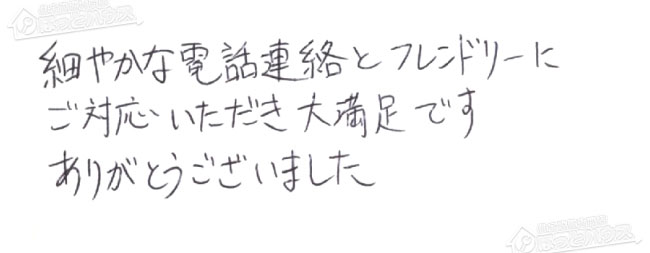 細やかな電話連絡とフレンドリーに
ご対応いただき大満足です
ありがとうございました